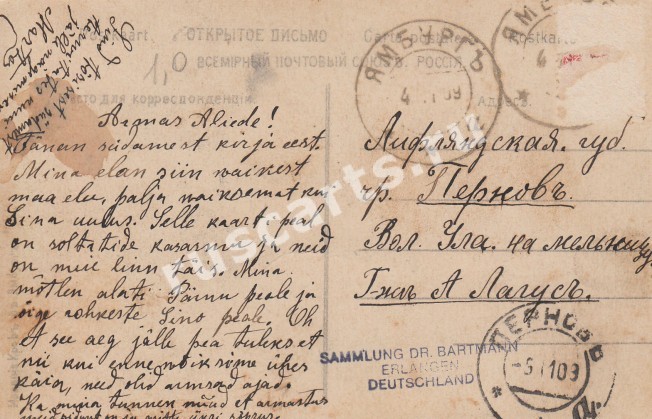 ОТКРЫТОЕ ПИСЬМО
Carte postale
Postkarte
ВСЕМІРНЫЙ ПОЧТОВЫЙ СОЮЗ. РОССІЯ.
1,0
ЯМБУРГЪ
Мѣсто для корреспонденціи
Адресъ
Armas Aliede!
Tänan südamest kirja eest.
Mina elan siin waikest
maa elu, palju waiksemat kui
Sina uulus. Selle kaart peal
on soltatide kasarmu ja neid
on meie linn täis. Mina
mõtlen alati Pärnu peale ja
õige rohkeste Sino peale. Oh
et see aeg jälle pea tuleks et
nii kui enne võiksime ühes
käia, need olid armsad ajad.
Ka mina tunnen nüüd et armastus
Лифляндская. губ.
гр. Перновъ.
Вол. Ула. на мельницу
Гжъ А Лагусъ.
SAMMLUNG DR. BARTMANN
ERLANGEN
DEUTSCHLAND
ПЕРНОВЪ
ruscarts.ru